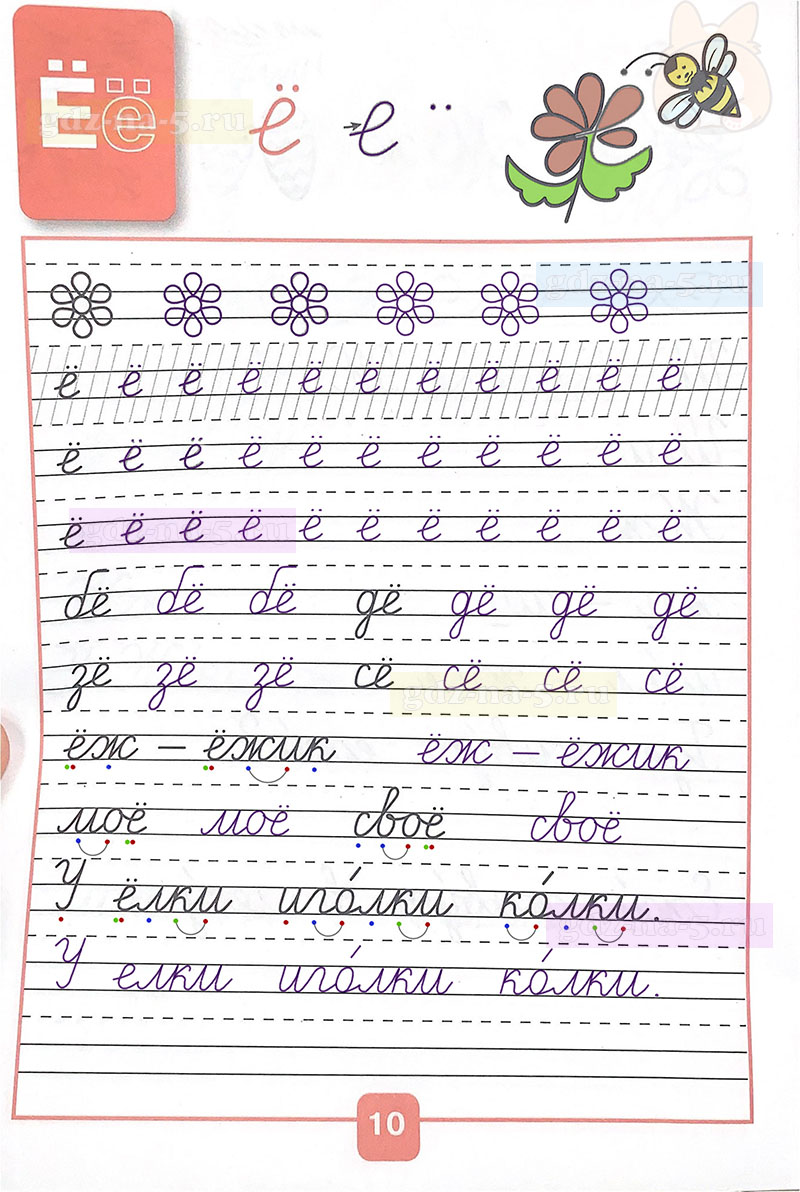 Ёё ё е ¨
gdz-na-5.ru
gdz-na-5.ru
ё ё ё ё ё ё ё ё ё ё ё
ё ё ё ё ё ё ё ё ё ё ё
ё ё ё ё ё ё ё ё ё ё ё
gdz-na-5.ru
бё бё бё дё дё дё дё
зё зё зё сё сё сё сё
gdz-na-5.ru
ёж – ёжик ёж – ёжик
моё моё своё своё
У ёлки иго́лки ко́лки.
gdz-na-5.ru
У елки иго́лки ко́лки.
10